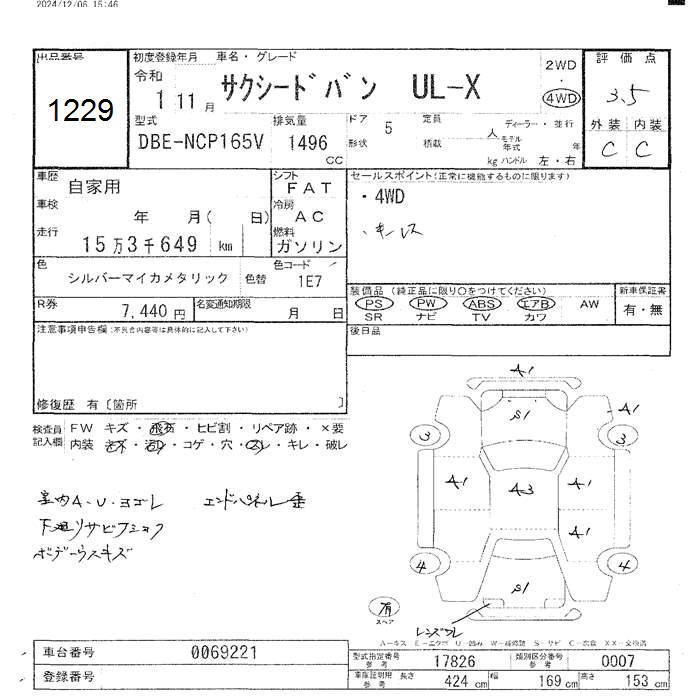 2024/12/06 15:46
出品番号 初度登録年月 車名・グレード 2WD 評価点
1229 令和 1 11月 サクシードバン UL-X ・ 4WD 3.5
型式 排気量 ドア 5 定員 人 ディーラー・並行 外装 内装
DBE-NCP165V 1496 CC 形状 積載 kg モデル年式 年 ハンドル 左・右 C C
車歴 自家用 シフト FAT セールスポイント(正常に機能するものに限ります)
車検 年 月( 日) 冷房 AC ・4WD
走行 15万3千649 km 燃料 ガソリン ・キーレス
色 シルバーマイカメタリック 色替 色コード 1E7
装備品(純正品に限り○をつけてください) 新車保証書
R券 7,440円 名変通知期限 月 日 PS PW ABS エアB AW 有・無
SR ナビ TV カワ
注意事項申告欄(不具合内容等は具体的に記入して下さい) 後日品
修復歴 有〔箇所 〕
検査員記入欄 FW キズ・飛石・ヒビ割・リペア跡・×要
内装 キズ・汚れ・コゲ・穴・スレ・キレ・破レ
A1
S1 A1
3 3
A1 A3 A1
A1
4 4
S1
室内A・U・ヨゴレ エンドパネル歪
下廻りサビフショク
ボデーウスキズ
有
スペア
レンズワレ
A-キズ E-エクボ U-凹み W-補修跡 S-サビ C-腐食 XX-交換済
車台番号 0069221 型式指定番号 参考 17826 類別区分番号 参考 0007
登録番号 車庫証明用 参考 長さ 424 cm 幅 169 cm 高さ 153 cm